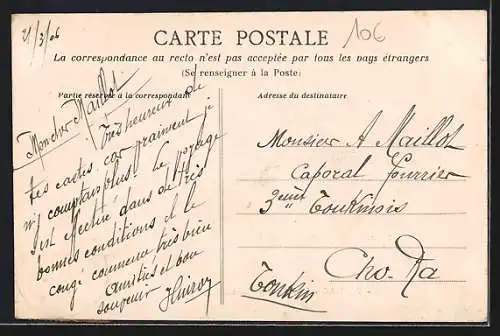 21/3/06
106
CARTE POSTALE
La correspondance au recto n'est pas acceptée par tous les pays étrangers
(Se renseigner à la Poste)
Partie réservée à la correspondant
Adresse du destinataire
Mon cher Maillot
Très heureux de
tes cartes car vraiment je
n'y comptais plus. Le voyage
s'est effectué dans de très
bonnes conditions et le
congé commence très bien
Amitiés et bon
souvenir
Monsieur A Maillot
Caporal Fourrier
3eme Tonkinois
Cho-Ra
Tonkin